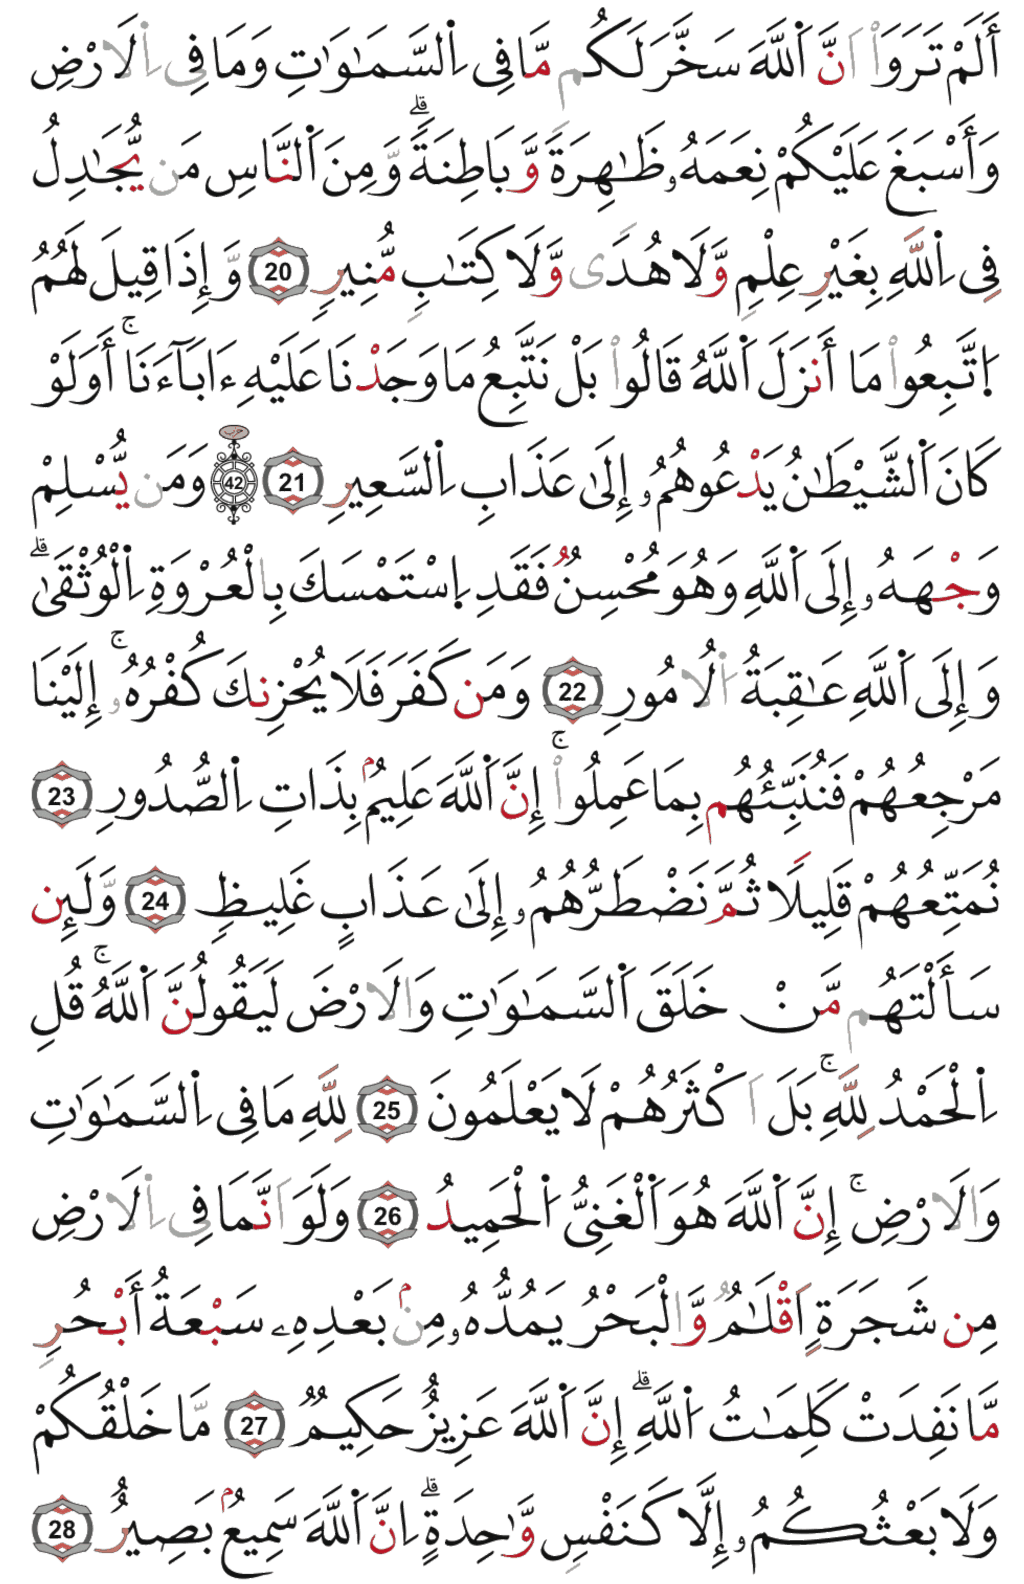 أَلَمْ تَرَوَاْ اَنَّ اَ۬للَّهَ سَخَّرَ لَكُم مَّا فِي اِ۬لسَّمَٰوَٰتِ وَمَا فِي اِ۬لَارْضِ
وَأَسْبَغَ عَلَيْكُمْ نِعَمَهُۥ ظَٰهِرَةً وَّبَاطِنَةًۗ وَّمِنَ اَ۬لنَّاسِ مَن يُّجَٰدِلُ
فِي اِ۬للَّهِ بِغَيْرِ عِلْمٍ وَّلَا هُدًى وَّلَا كِتَٰبٍ مُّنِيرٍ 20 وَّإِذَا قِيلَ لَهُمُ
اُ۪تَّبِعُواْ مَا أَنزَلَ اَ۬للَّهُ قَالُواْ بَلْ نَتَّبِعُ مَا وَجَدْنَا عَلَيْهِ ءَابَآءَنَاۚ أَوَلَوْ
كَانَ اَ۬لشَّيْطَٰنُ يَدْعُوهُمُۥ إِلَىٰ عَذَابِ اِ۬لسَّعِيرِ 21 حزب 42 وَمَن يُّسْلِمْ
وَجْهَهُۥ إِلَى اَ۬للَّهِ وَهُوَ مُحْسِنٌ فَقَدِ اِ۪سْتَمْسَكَ بِالْعُرْوَةِ اِ۬لْوُثْقَىٰۗ
وَإِلَى اَ۬للَّهِ عَٰقِبَةُ اُ۬لُامُورِ 22 وَمَن كَفَرَ فَلَا يُحْزِنكَ كُفْرُهُۥۚ إِلَيْنَا
مَرْجِعُهُمْ فَنُنَبِّئُهُم بِمَا عَمِلُواْۚ إِنَّ اَ۬للَّهَ عَلِيمٌۢ بِذَاتِ اِ۬لصُّدُورِ 23
نُمَتِّعُهُمْ قَلِيلًا ثُمَّ نَضْطَرُّهُمُۥ إِلَىٰ عَذَابٍ غَلِيظٍ 24 وَّلَئِن
سَأَلْتَهُم مَّنْ خَلَقَ اَ۬لسَّمَٰوَٰتِ وَالَارْضَ لَيَقُولُنَّ اَ۬للَّهُۚ قُلِ
اِ۬لْحَمْدُ لِلَّهِۚ بَلَ اَكْثَرُهُمْ لَا يَعْلَمُونَ 25 لِلَّهِ مَا فِي اِ۬لسَّمَٰوَٰتِ
وَالَارْضِۚ إِنَّ اَ۬للَّهَ هُوَ اَ۬لْغَنِيُّ اُ۬لْحَمِيدُ 26 وَلَوَ اَنَّمَا فِي اِ۬لَارْضِ
مِن شَجَرَةٍ اَقْلَٰمٌ وَّالْبَحْرُ يَمُدُّهُۥ مِنۢ بَعْدِهِۦ سَبْعَةُ أَبْحُرٍ
مَّا نَفِدَتْ كَلِمَٰتُ اُ۬للَّهِۗ إِنَّ اَ۬للَّهَ عَزِيزٌ حَكِيمٌ 27 مَّا خَلْقُكُمْ
وَلَا بَعْثُكُمُۥ إِلَّا كَنَفْسٍ وَّٰحِدَةٍۗ اِنَّ اَ۬للَّهَ سَمِيعٌۢ بَصِيرٌ 28